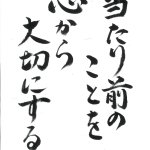 当たり前の
ことを
心から
大切にする